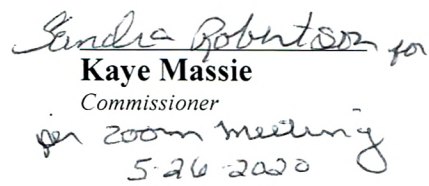 Sandra Robertson for
Kaye Massie
Commissioner
per zoom meeting
5-26-2020